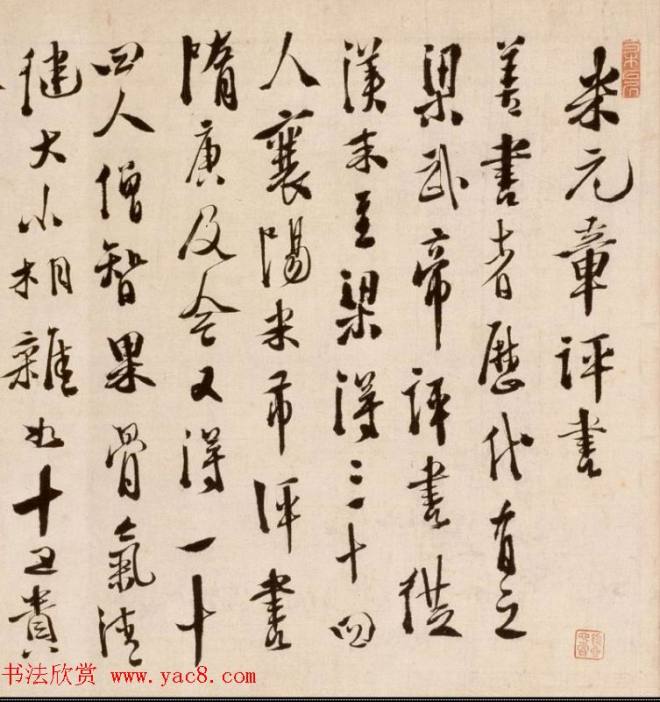 米元章評書
善書者歷代有之
梁武帝評書從
漢末至梁得三十四
人襄陽米芾評書
隋唐及今又得一十
四人僧智果骨氣清
健大小相雜如十五貴
书法欣赏 www.yac8.com